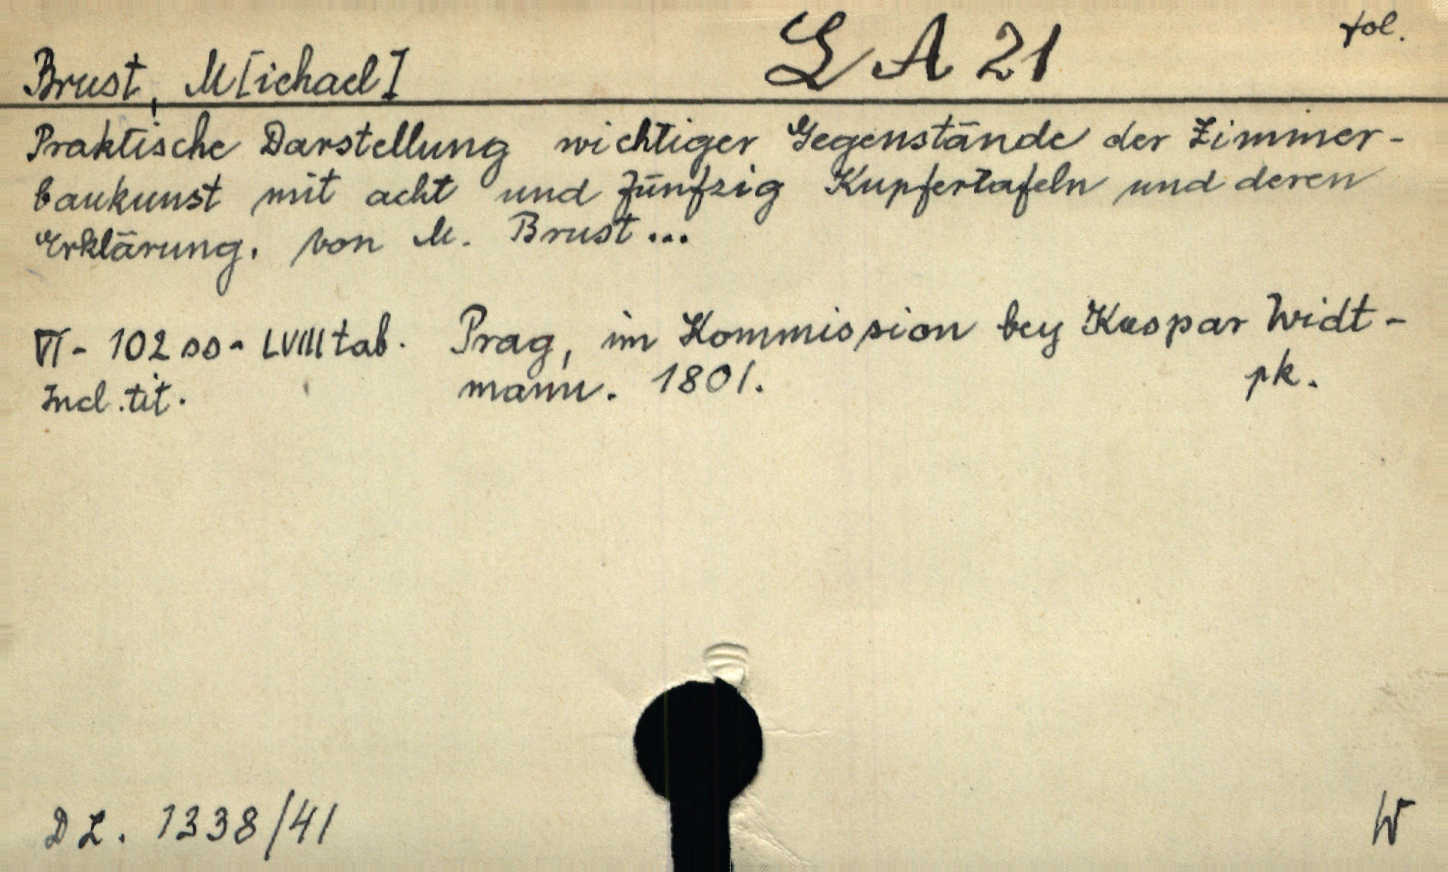 Brust, M[ichael]
L A 21
fol.
Praktische Darstellung wichtiger Gegenstände der Zimmer-
baukunst mit acht und fünfzig Kupfertafeln und deren
Erklärung. von M. Brust...
VI - 102 ss - LVIII tab. Prag, im Kommission bey Kaspar Widt-
Incl. tit. mann. 1801. pk.
DL. 1338/41
W